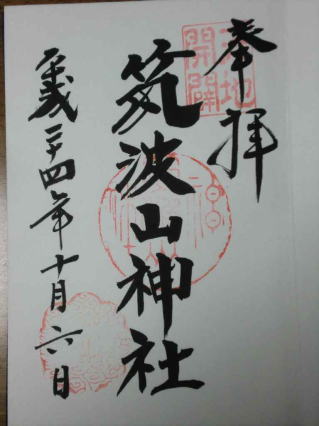 奉拝
天地開闢
筑波山神社
平成二十四年十月六日